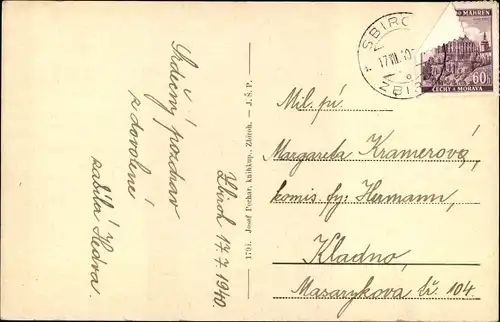 Srdečný pozdrav
z dovolené
zasílá Hedva.
Zbiroh 17.7.1940
1791. Josef Pochar, knihkup., Zbiroh. — J. Š. P.
SBIRO
17.VII.40
ZBIR
MÄHREN
60
ČECHY A MORAVA
Mil. pí.
Margareta Kramerová,
komis. fy: Hermann,
Kladno,
Masarykova tř. 104.